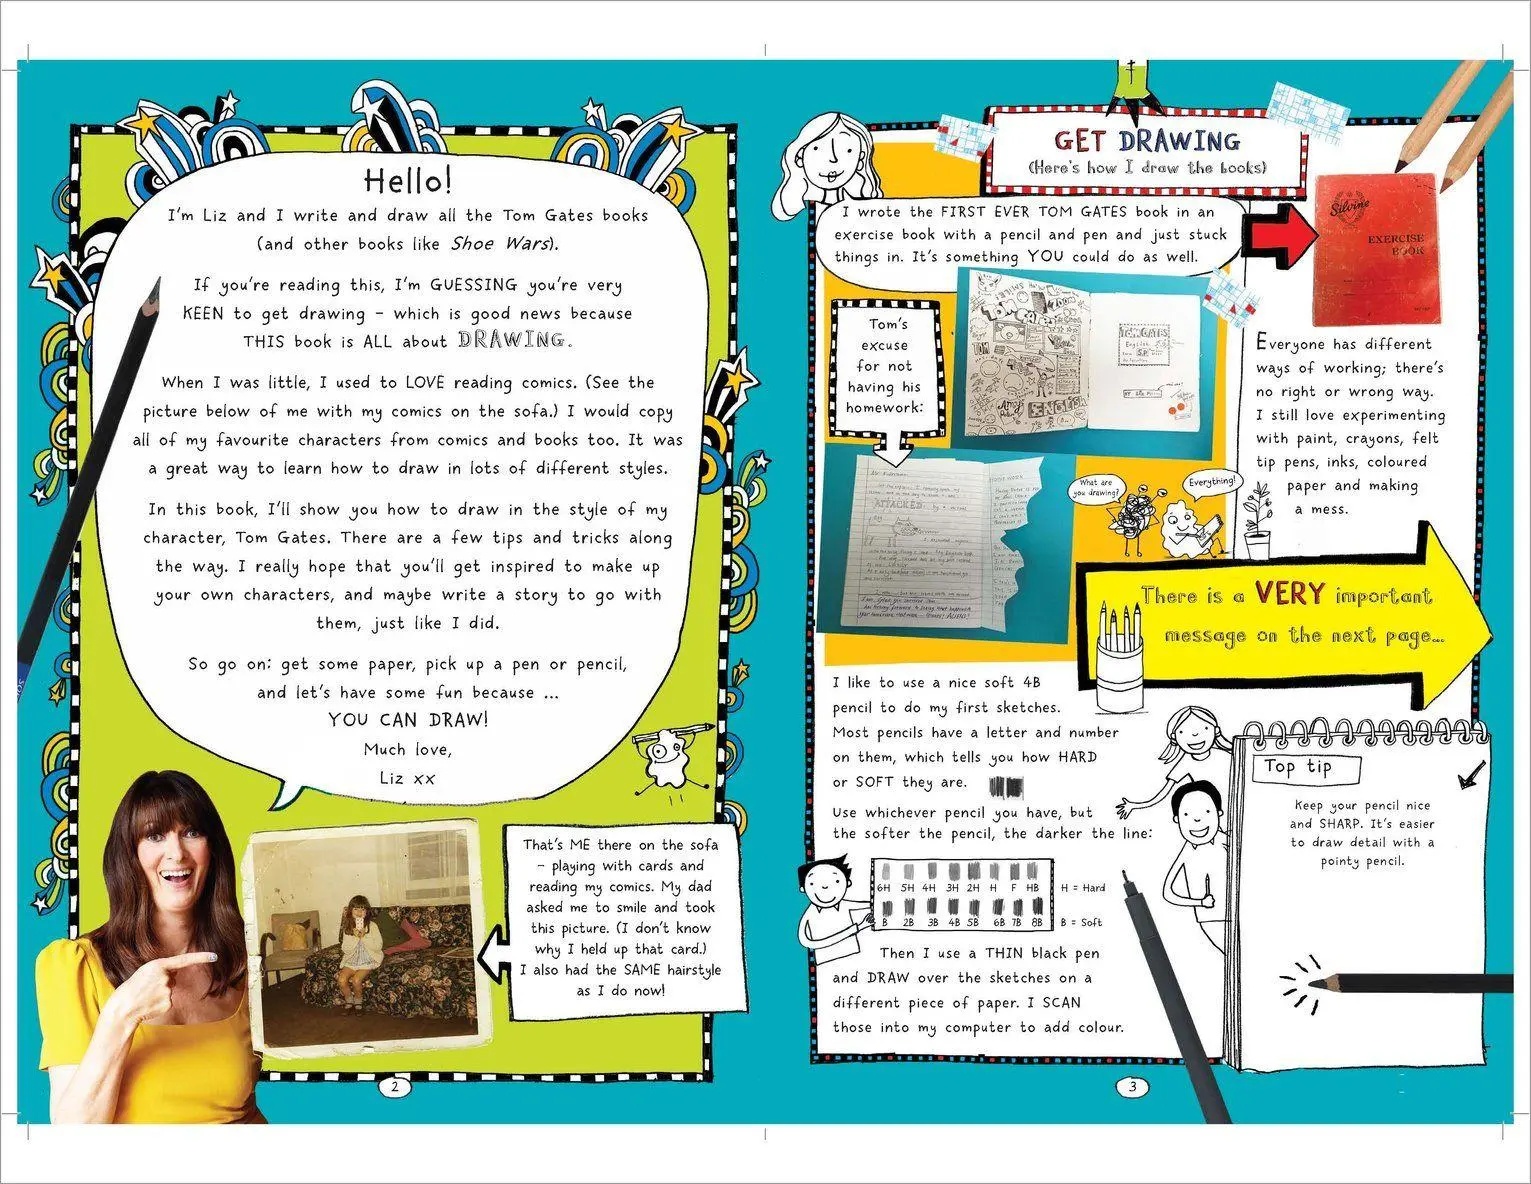 Hello!
I'm Liz and I write and draw all the Tom Gates books
(and other books like Shoe Wars).
If you're reading this, I'm GUESSING you're very
KEEN to get drawing – which is good news because
THIS book is ALL about DRAWING.
When I was little, I used to LOVE reading comics. (See the
picture below of me with my comics on the sofa.) I would copy
all of my favourite characters from comics and books too. It was
a great way to learn how to draw in lots of different styles.
In this book, I'll show you how to draw in the style of my
character, Tom Gates. There are a few tips and tricks along
the way. I really hope that you'll get inspired to make up
your own characters, and maybe write a story to go with
them, just like I did.
So go on: get some paper, pick up a pen or pencil,
and let's have some fun because ...
YOU CAN DRAW!
Much love,
Liz xx
That's ME there on the sofa
– playing with cards and
reading my comics. My dad
asked me to smile and took
this picture. (I don't know
why I held up that card.)
I also had the SAME hairstyle
as I do now!
2
GET DRAWING
(Here's how I draw the books)
I wrote the FIRST EVER TOM GATES book in an
exercise book with a pencil and pen and just stuck
things in. It's something YOU could do as well.
Silvine
EXERCISE
BOOK
Tom's
excuse
for not
having his
homework:
TOM GATES
English
ENGLISH
ATTACKED
What are
you drawing?
Everything!
Everyone has different
ways of working; there's
no right or wrong way.
I still love experimenting
with paint, crayons, felt
tip pens, inks, coloured
paper and making
a mess.
There is a VERY important
message on the next page...
I like to use a nice soft 4B
pencil to do my first sketches.
Most pencils have a letter and number
on them, which tells you how HARD
or SOFT they are.
Use whichever pencil you have, but
the softer the pencil, the darker the line:
6H 5H 4H 3H 2H H F HB
H = Hard
B 2B 3B 4B 5B 6B 7B 8B
B = Soft
Then I use a THIN black pen
and DRAW over the sketches on a
different piece of paper. I SCAN
those into my computer to add colour.
Top tip
Keep your pencil nice
and SHARP. It's easier
to draw detail with a
pointy pencil.
3